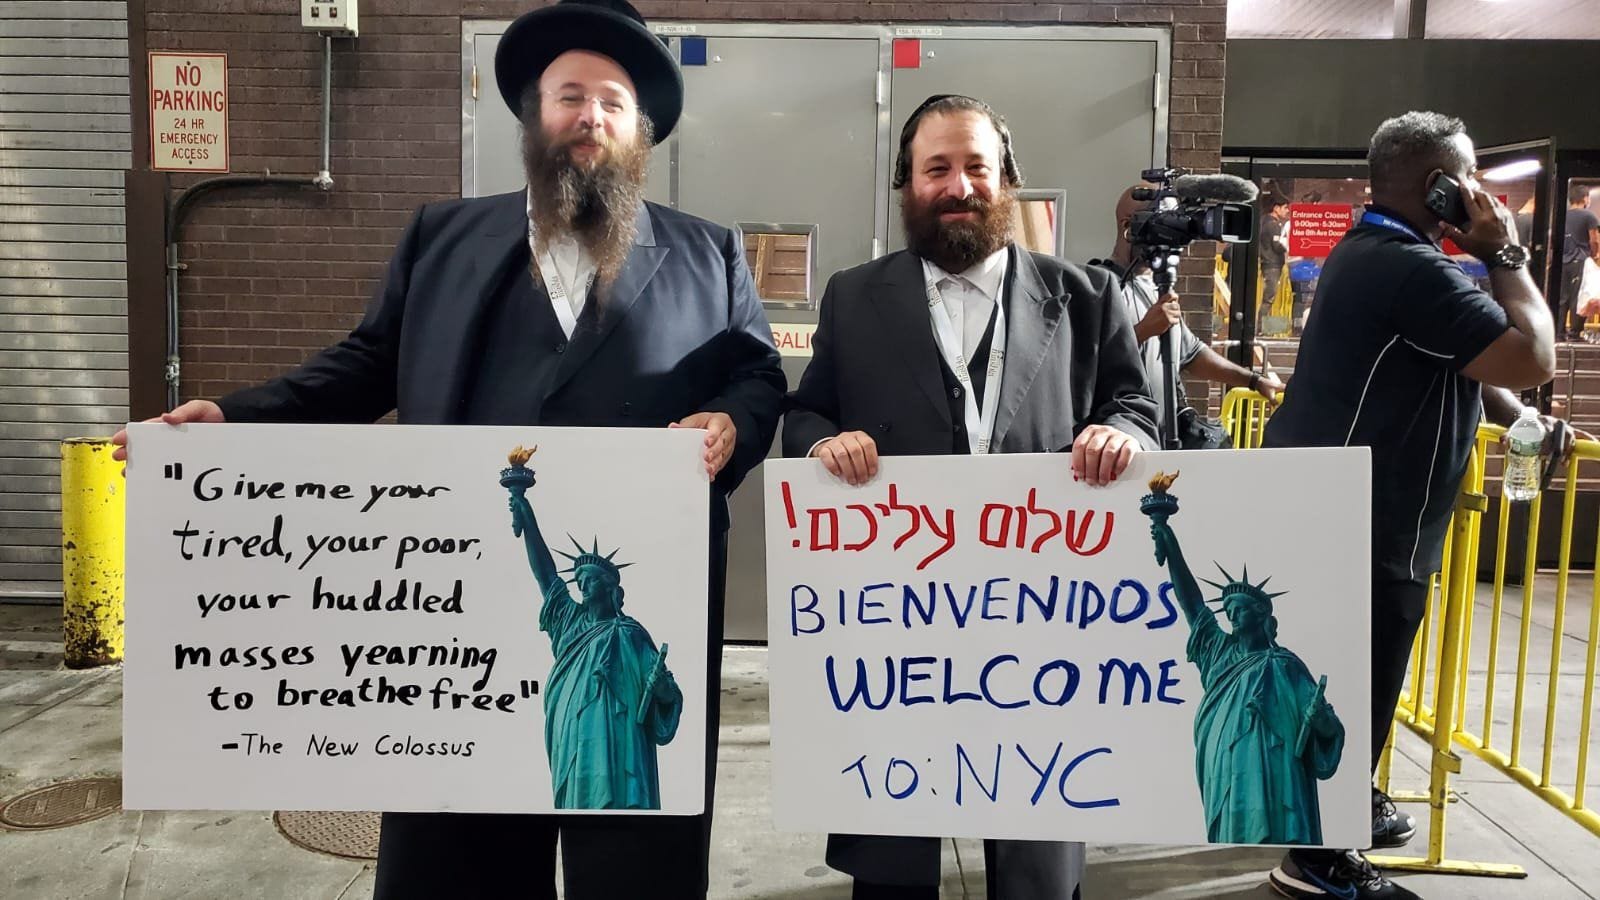 NO
PARKING
24 HR
EMERGENCY
ACCESS
"Give me your
tired, your poor,
your huddled
masses yearning
to breathe free"
-The New Colossus
שלום עליכם!
BIENVENIDOS
WELCOME
TO: NYC
Entrance Closed
9:00pm - 5:30am
Use 8th Ave Doors